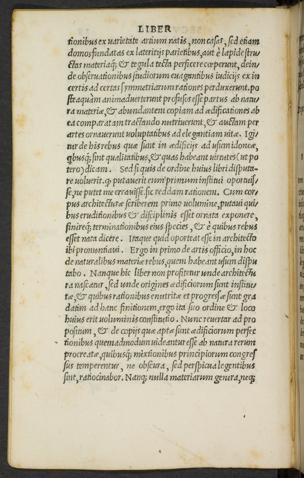 LIBER
tionibus ex uarietate artium natis, non casas, sed etiam
domos fundatas ex lateritijs parietibus, aut è lapide stru
ctas materiaq́; & tegula tecta perficere cœperunt, dein/
de obseruationibus studiorum euagantibus iudicijs ex in
certis ad certas symmetriarum rationes perduxerunt. po
stea quàm animaduerterunt profusos esse partus ab natu
ra materiæ, & abundantem copiam ad ædificationes ab
ea comparatam tractando nutriuerunt, & auctam per
artes ornauerunt uoluptatibus ad elegantiam uitæ. Igi
tur de his rebus quæ sunt in ædificijs ad usum idoneæ,
q́busq́; sint qualitatibus, & quas habeant uirtutes (ut po
tero) dicam. Sed si quis de ordine huius libri disputa-
re uoluerit. q putauerit eum primum institui oportuis/
se, ne putet me errauisse, sic reddam rationem. Cum cor/
pus architecturæ scriberem primo uolumine, putaui qui/
bus eruditionibus & disciplinis esset ornata exponere,
finireq́; terminationibus eius species, & è quibus rebus
esset nata dicere. Itaque quid oporteat esse in architecto
ibi pronuntiaui. Ergo in primo de artis officio, in hoc
de naturalibus materiæ rebus, quem habeant usum dispu
tabo. Nanque hic liber non profitetur unde architectu
ra nascatur, sed unde origines ædificiorum sunt institu
tæ, & quibus rationibus enutritæ et progressæ sunt gra
datim ad hanc finitionem, ergo ita suo ordine & loco
huius erit uoluminis constitutio. Nunc reuertar ad pro
positum, & de copijs quæ aptæ sunt ædificiorum perfec
tionibus quemadmodum uideantur esse ab natura rerum
procreatæ, quibusq́; mixtionibus principiorum congres
sus temperentur, ne obscura, sed perspicua legentibus
sint, ratiocinabor. Nanq; nulla materiarum genera, neq;